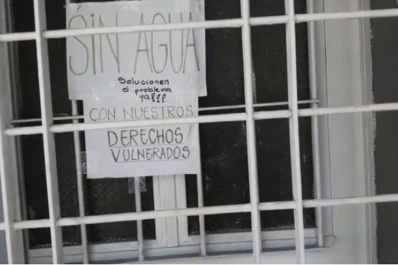 SIN AGUA
Solucionen
el problema
ya!!!
CON NUESTROS
DERECHOS
VULNERADOS